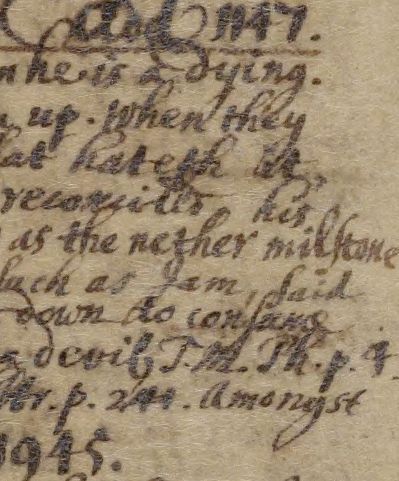 And 1147.
he is a dying.
up. when they
hateth it,
reconciles his
as the nether milstone
such as I am, said
down to consume
devil T. M. Ph. p. 4.
p. 241. Amongst
1945.